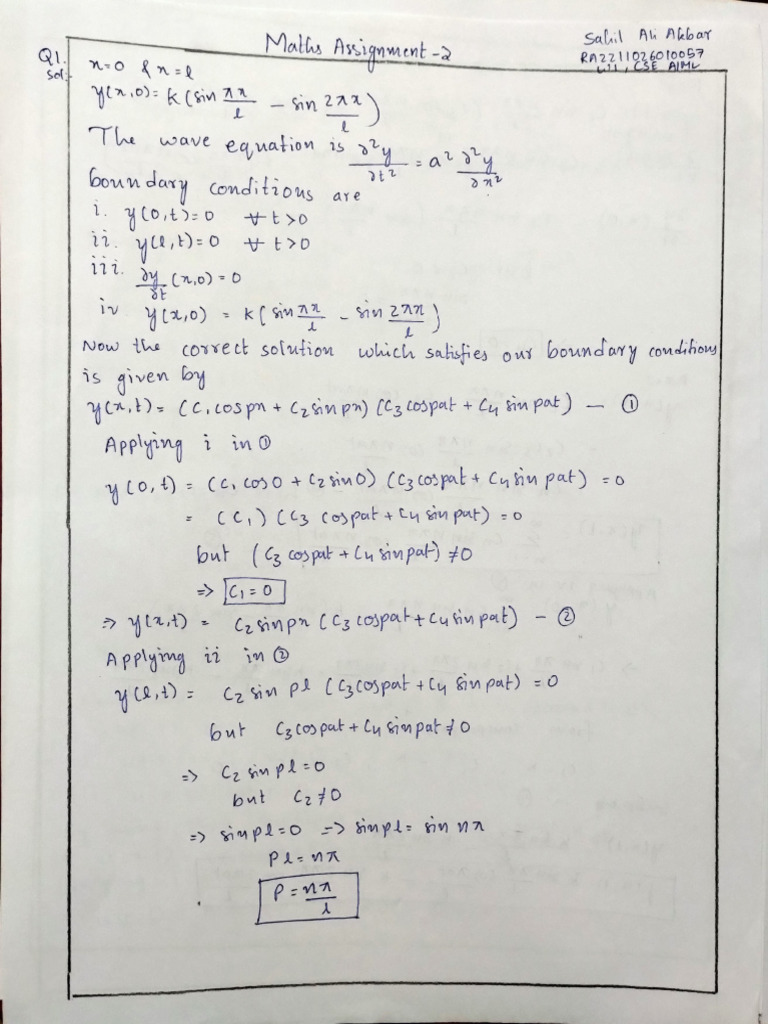 Maths Assignment-2
Sahil Ali Akbar
RA2211026010057
, CSE AIML
Q1.
Sol:- x=0 & x=l
y(x,0)= K(sin πx/l - sin 2πx/l)
The wave equation is ∂²y/∂t² = a² ∂²y/∂x²
boundary conditions are
i. y(0,t)=0 ∀ t>0
ii. y(l,t)=0 ∀ t>0
iii. ∂y/∂t (x,0)=0
iv y(x,0) = K(sin πx/l - sin 2πx/l)
Now the correct solution which satisfies our boundary conditions
is given by
y(x,t)= (C₁cospx + C₂sinpx) (C₃cospat + C₄ sin pat) — ①
Applying i in ①
y(0,t) = (C₁ cos0 + C₂ sin0) (C₃cospat + C₄ sin pat) = 0
= (C₁) (C₃ cospat + C₄ sin pat) = 0
but (C₃ cospat + C₄ sinpat) ≠0
=> C₁=0
=> y(x,t) = C₂ sinpx (C₃ cospat + C₄ sin pat) — ②
Applying ii in ②
y(l,t) = C₂ sin pl (C₃cospat + C₄ sin pat) = 0
but C₃cospat + C₄ sin pat ≠ 0
=> C₂ sin pl = 0
but C₂ ≠0
=> sin pl=0 => sinpl = sin nπ
Pl = nπ
P = nπ/l